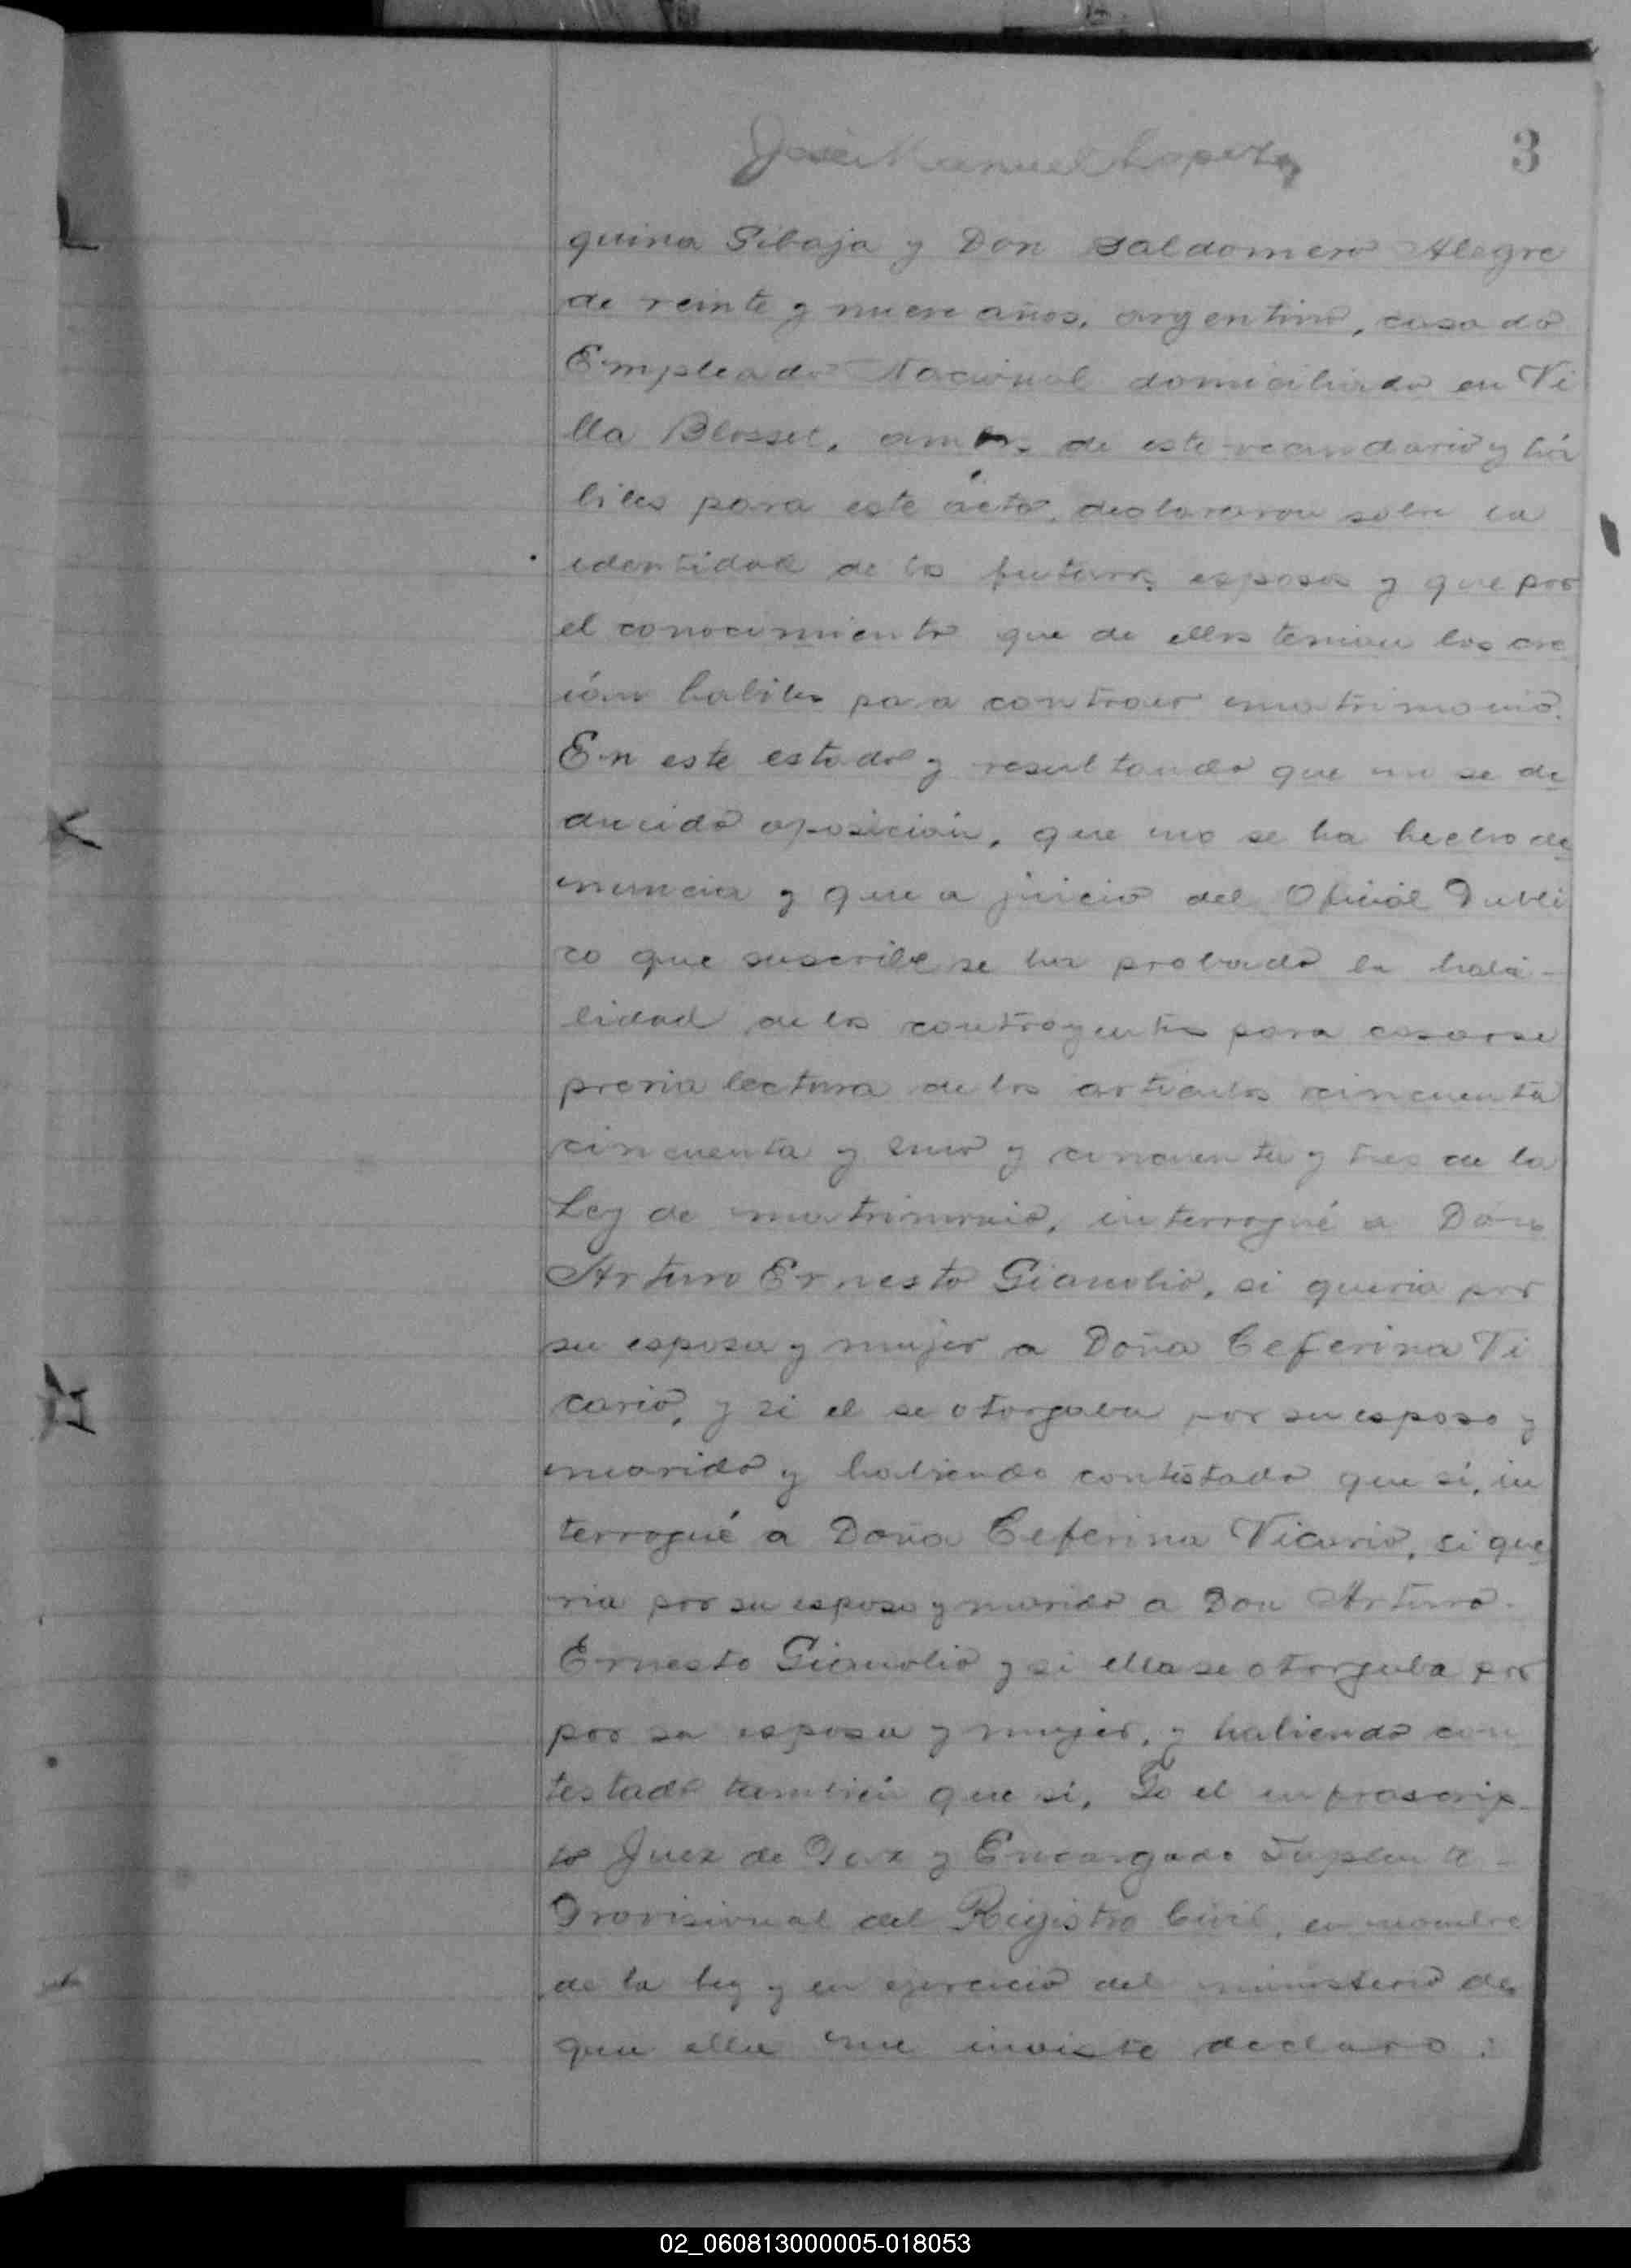 José Manuel Lopez
3
quina Sibaja y Don Baldomero Alegre
de veinte y nueve años, argentino, casado
Empleado Nacional domiciliado en Vi
lla Blosset, ambos de este vecindario y há
biles para este acto, declararon sobre la
identidad de los futuros esposos y que por
el conocimiento que de ellos tenian los cre
ián habiles para contraer matrimonio.
En este estado y resultando que no se de
ducido oposición, que no se ha hecho de
nuncia y que a juicio del Oficial Publi
co que suscribe se ha probado la habi-
lidad de los contrayentes para casarse
previa lectura de los articulos cincuenta
cincuenta y uno y cincuenta y tres de la
Ley de matrimonio, interrogué a Don
Arturo Ernesto Gianolio, si queria por
su esposa y mujer a Doña Ceferina Vi
cario, y si el se otorgaba por su esposo y
marido y habiendo contestado que si, in
terrogué a Doña Ceferina Vicario, si que
ria por su esposo y marido a Don Arturo
Ernesto Gianolio y si ella se otorgaba por
por su esposa y mujer, y habiendo con
testado también que si, Yo el infrascrip-
to Juez de Paz y Encargado Suplente
Provisional del Registro Civil, en nombre
de la ley y en ejercicio del ministerio de
que ella me inviste declaro:
02_060813000005-018053